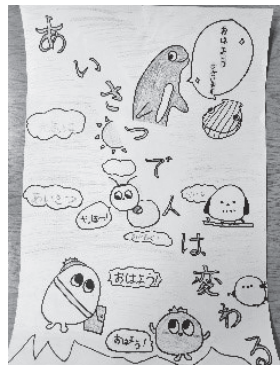 あいさつで人は変わる
おはよう
ございます
やっほー!
おはよう!
おはよう!